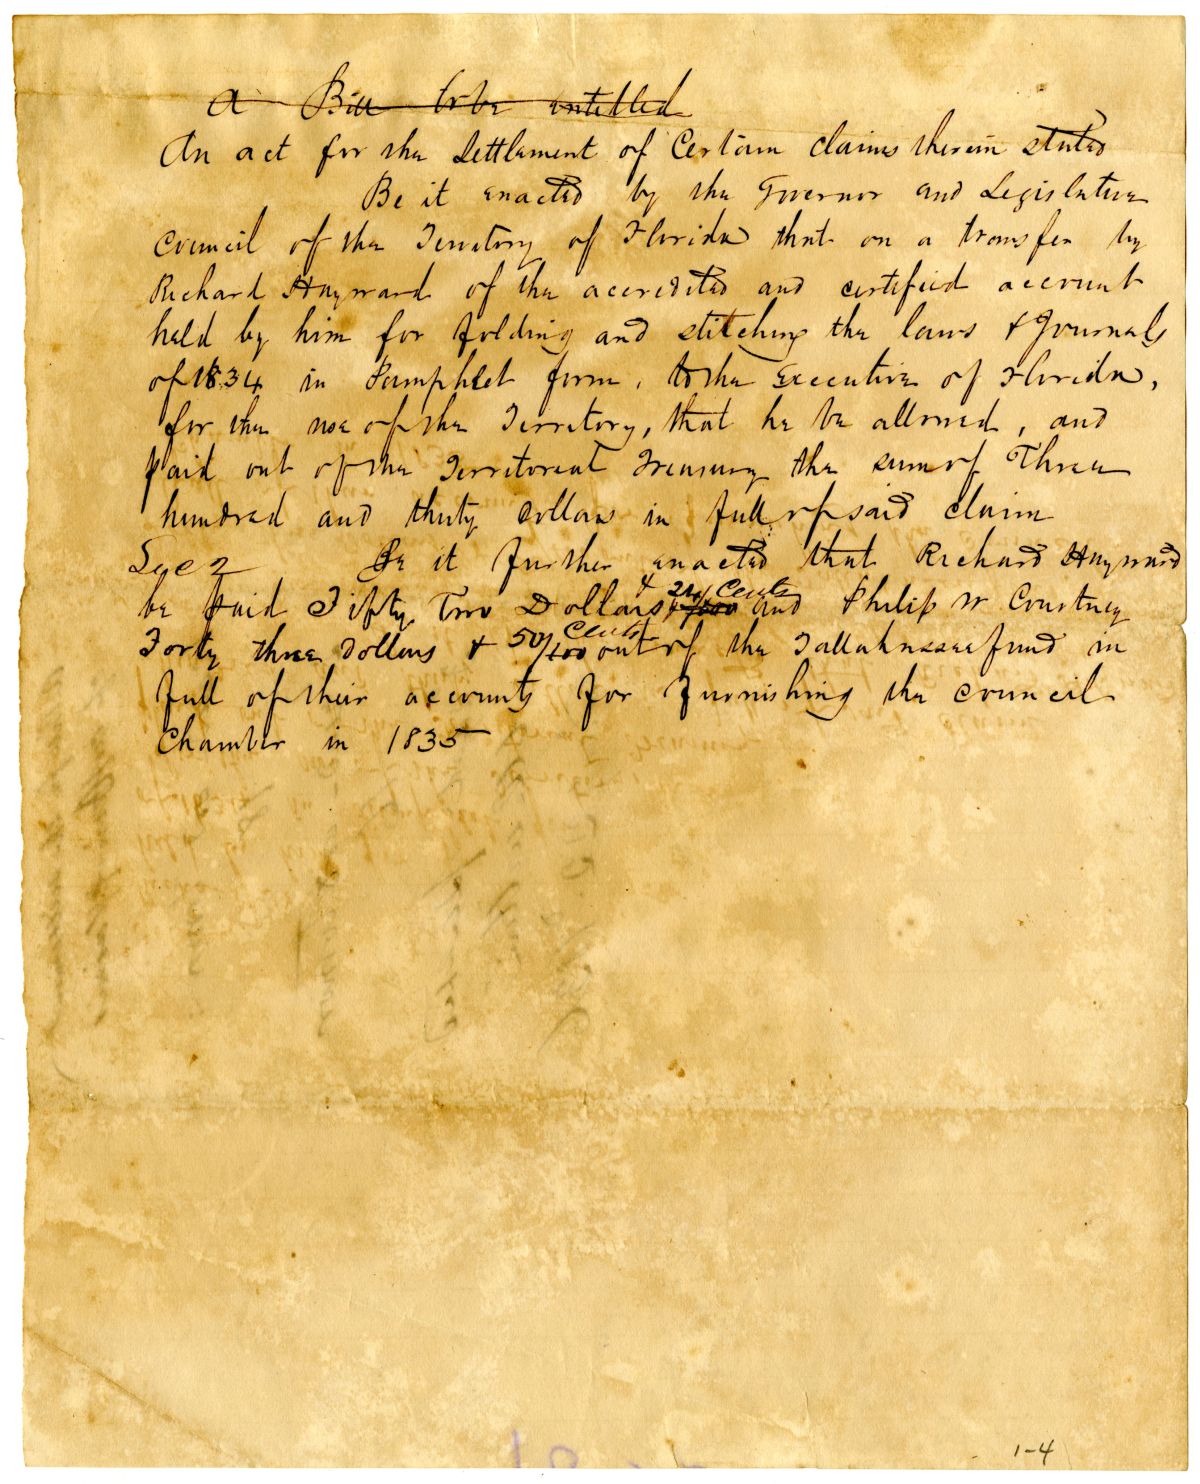 A Bill to be entitled
An act for the Settlement of Certain claims therein stated
Be it enacted by the Governor and Legislative
Council of the Territory of Florida that on a transfer by
Richard Hayward of the accredited and certified account
held by him for folding and stitching the laws & Journals
of 1834 in Pamphlet form, to the Executive of Florida,
for the use of the Territory, that he be allowed, and
paid out of the Territorial Treasury the sum of Three
hundred and thirty dollars in full of said claim
Sec 2 Be it further enacted that Richard Hayward
be paid Fifty Two Dollars & 24/100 Cents and Philip W Courtney
Forty three Dollars & 50/100 Cents out of the Tallahassee fund in
full of their accounts for furnishing the council
Chamber in 1835
1-4